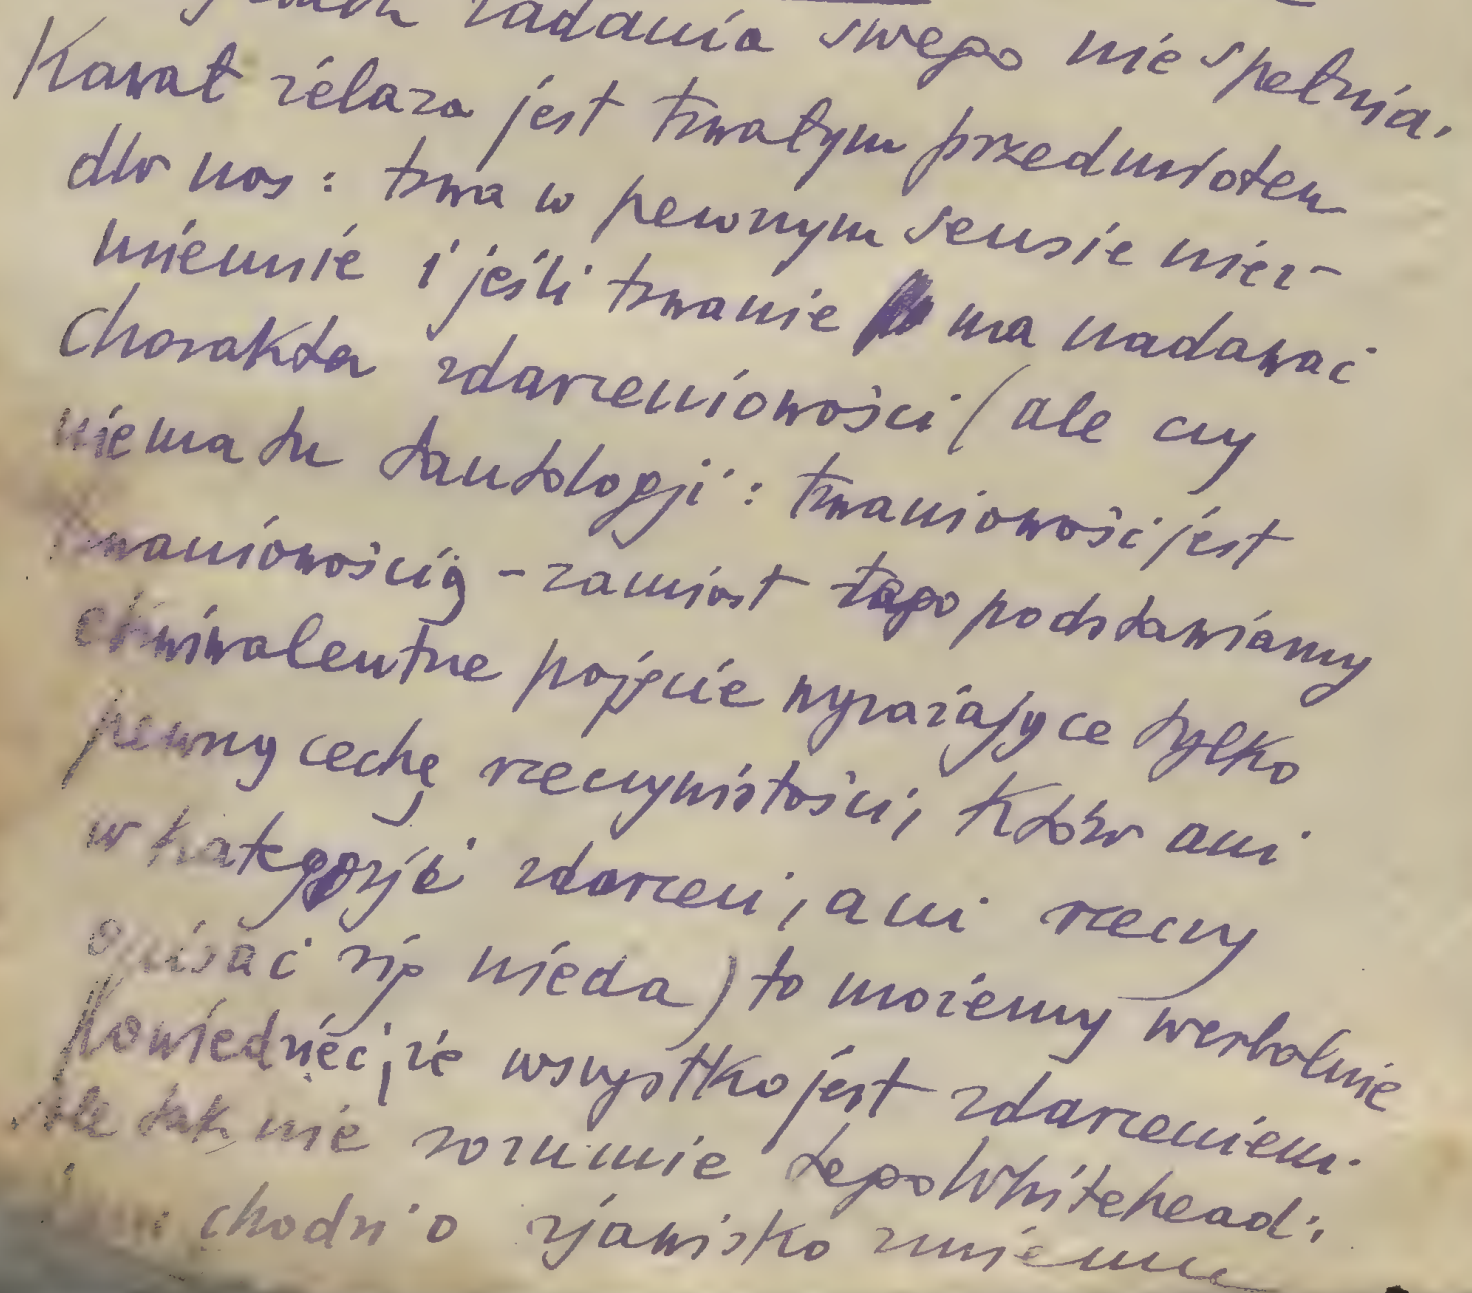 zadania swego nie spełnia.
Kawał żelaza jest trwałym przedmiotem
dla nas: trwa w pewnym sensie niez-
miennie i jeśli trwanie ma nadawać
charakter zdarzeniowości (ale czy
niema tu tautologji: trwaniowość jest
trwaniowością - zamiast tego podstawiamy
ekwiwalentne pojęcie wyrażające tylko
pewną cechę rzeczywistości, która ani
w kategorji zdarzeń, ani rzeczy
opisać się nieda) to możemy werbalnie
powiedzieć, że wszystko jest zdarzeniem.
Ale tak nie rozumie tego Whitehead;
chodzi o zjawisko